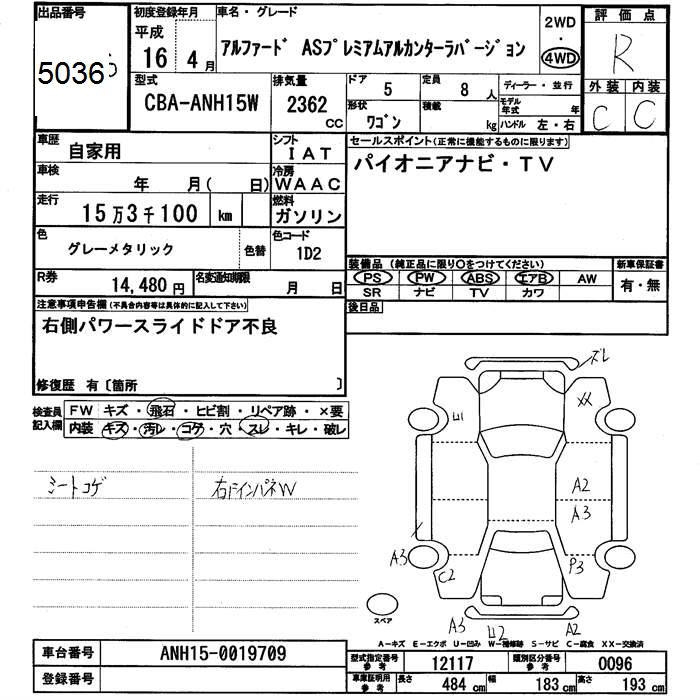 出品番号 初度登録年月 車名・グレード 2WD 評価点
5036 平成 16 4月 アルファード ASプレミアムアルカンターラバージョン ・ 4WD R
型式 排気量 ドア 定員 ディーラー・並行 外装 内装
CBA-ANH15W 2362 CC 5 8 人 モデル年式 年 C C
形状 ワゴン 積載 kg ハンドル 左・右
車歴 自家用 シフト IAT セールスポイント(正常に機能するものに限ります)
車検 年 月( 日) 冷房 WAAC パイオニアナビ・TV
走行 15万3千100 km 燃料 ガソリン
色 グレーメタリック 色替 色コード 1D2
装備品(純正品に限り○をつけてください) 新車保証書
R券 14,480円 名変通知期限 月 日 PS PW ABS エアB AW 有・無
SR ナビ TV カワ
注意事項申告欄(不具合内容等は具体的に記入して下さい) 後日品
右側パワースライドドア不良
修復歴 有〔箇所 〕
検査員記入欄 FW キズ・飛石・ヒビ割・リペア跡・×要
内装 キズ・汚レ・コゲ・穴・スレ・キレ・破レ
シートコゲ 右ドインパネW
ズレ
U1 XX
A2
A3
A3 C2 P3
スペア A3 U2 A2
A-キズ E-エクボ U-凹み W-補修跡 S-サビ C-腐食 XX-交換済
車台番号 ANH15-0019709 型式指定番号 参考 12117 類別区分番号 参考 0096
登録番号 車庫証明用 参考 長さ 484 cm 幅 183 cm 高さ 193 cm